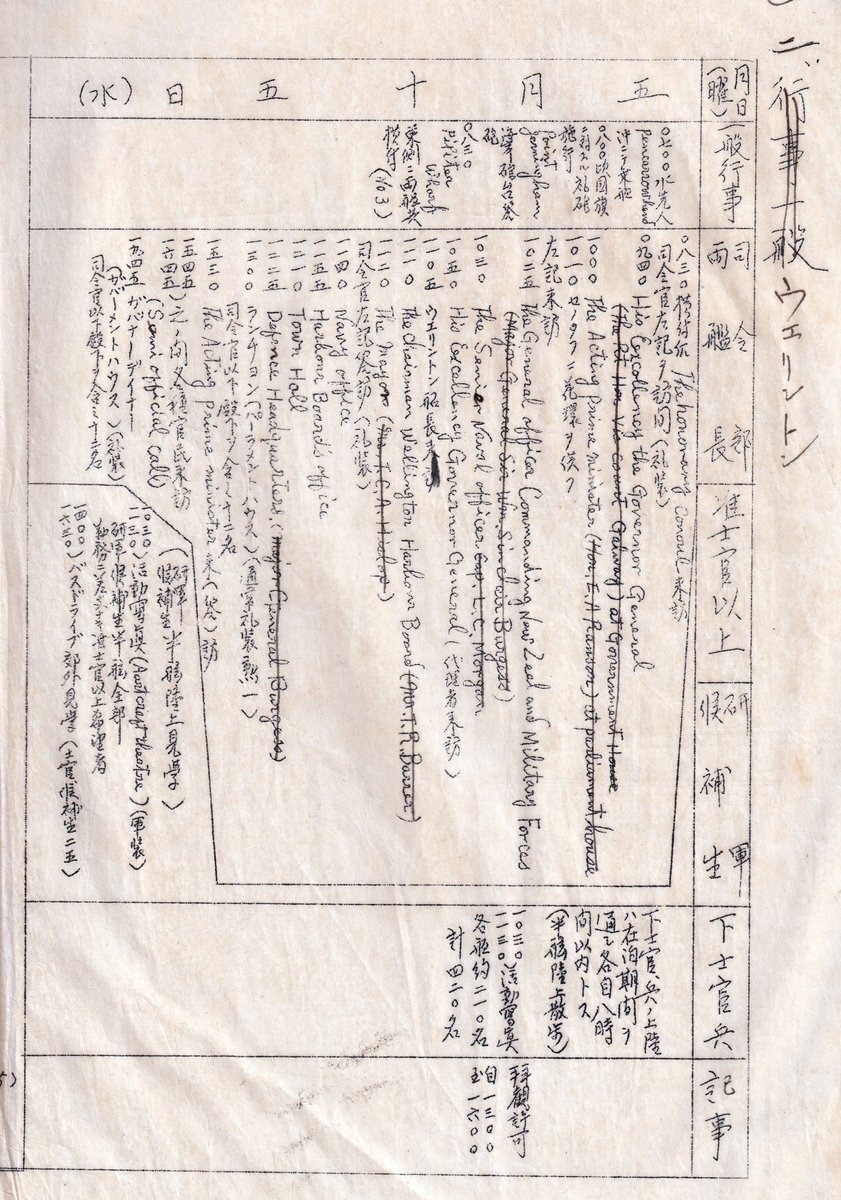 二、行事一般 ウェリントン
月日(曜)
一般行事
司令部
両艦長
准士官以上
研軍
候補生
下士官兵
記事
五月十五日(水)
〇七〇〇 水先人
Pencarrowhead
沖ニテ乗艦
〇八〇〇頃国旗
ニ対スル礼砲
施行
Point
Jerningham
海軍砲台答
砲
〇八三〇
Pipitea
Wharf
東側ニ両艦共
横付(No3)
〇八三〇 横付后 The honorary Consul 来訪
司令官左記ヲ訪問(礼装)
〇九四〇 His Excellency the Governor General
(The Rt Hon Vis Count Galway) at Government House
一〇〇〇 The Acting Prime minister (Hon. E. A. Ransom) at parliament house
一〇一〇 セノタフニ花環ヲ供ク
左記来訪
一〇二五 The General officer Commanding New Zeal and Military Forces
(Major General Sir Wm Sinclair Burgess)
一〇三〇 The Senior Naval officer Cap. L.C. Morgan
一〇五〇 His Excellency Governor General (代理者来訪)
一一〇五 ウエリントン船長来訪
一一一〇 The Chairman Wellington Harbour Board (Mr. T. R. Barrer)
一一二〇 The Mayor (Mr. T. C. A. Hislop)
司令官左記答訪(礼装)
一一四〇 Navy office
一一五五 Harbour Board's office
一二一〇 Town Hall
一二二五 Defence Headquarters. (Major General Burgess)
一三〇〇 ランチョン(パーラメントハウス)(通常礼装勲一)
司令官以下殿下ヲ含ミ十二名
一五三〇 The Acting Prime minister 来(答)訪
一五四五
一六四五)之ノ間各種官民来訪
(Semi official call)
一九四五 ガバナーデイナー
(ガバーメントハウス)(礼装)
司令官以下殿下ヲ含ミ十二名
(研軍
候補生半舷陸上見学)
一〇三〇
一一三〇)活動寫眞(Aust crest theatre)(軍装)
研軍候補生半舷全部
勤務ニ差支ナキ准士官以上希望者
一四〇〇
一六三〇)バスドライブ郊外見学(士官候補生二五)
下士官、兵ノ上陸
ハ在泊期間ヲ
通シ各自八時
間以内トス
(半舷陸上散歩)
一〇三〇
一一三〇)活動寫眞
各艦約二一〇名
計四二〇名
拝観許可
自一三〇〇
至一六〇〇
5)